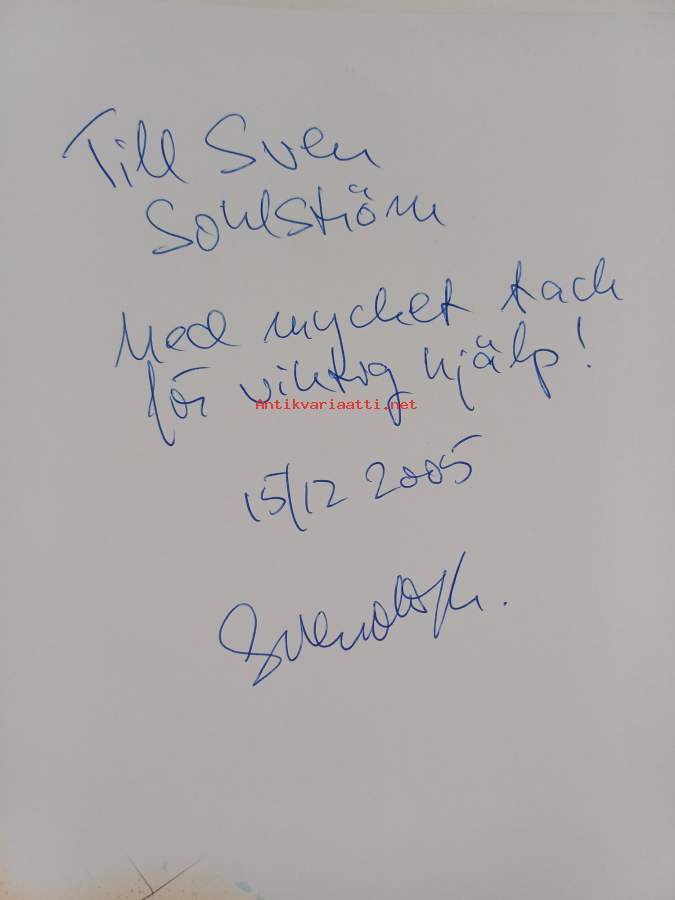 Till Sven
Sohlström
Med mycket tack
för viktig hjälp!
Antikvariaatti.net
15/12 2005